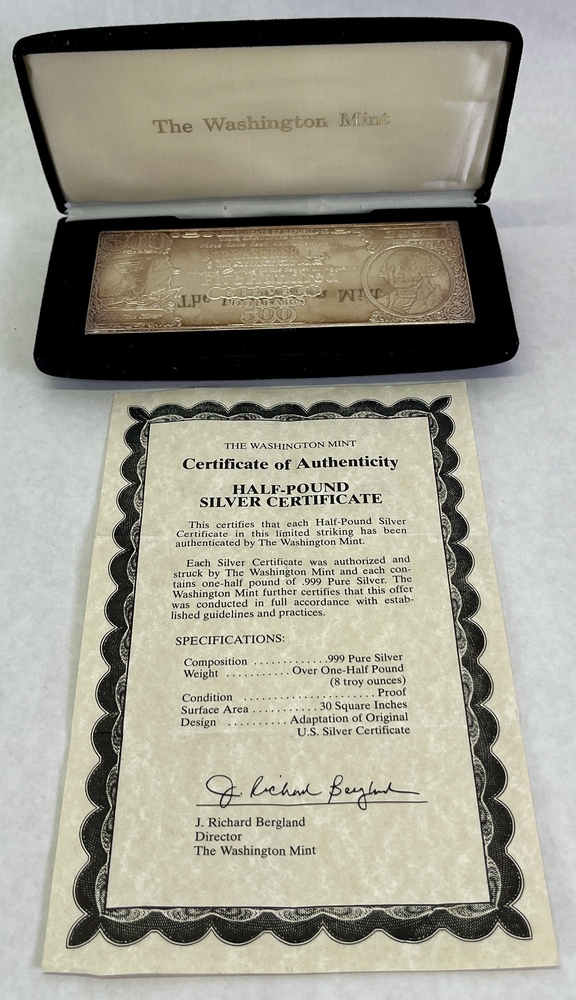 The Washington Mint
500
500
THE WASHINGTON MINT
Certificate of Authenticity
HALF-POUND
SILVER CERTIFICATE
This certifies that each Half-Pound Silver
Certificate in this limited striking has been
authenticated by The Washington Mint.
Each Silver Certificate was authorized and
struck by The Washington Mint and each con-
tains one-half pound of .999 Pure Silver. The
Washington Mint further certifies that this offer
was conducted in full accordance with estab-
lished guidelines and practices.
SPECIFICATIONS:
Composition ............ .999 Pure Silver
Weight ........... Over One-Half Pound
(8 troy ounces)
Condition ...................... Proof
Surface Area ........... 30 Square Inches
Design .......... Adaptation of Original
U.S. Silver Certificate
J. Richard Bergland
J. Richard Bergland
Director
The Washington Mint